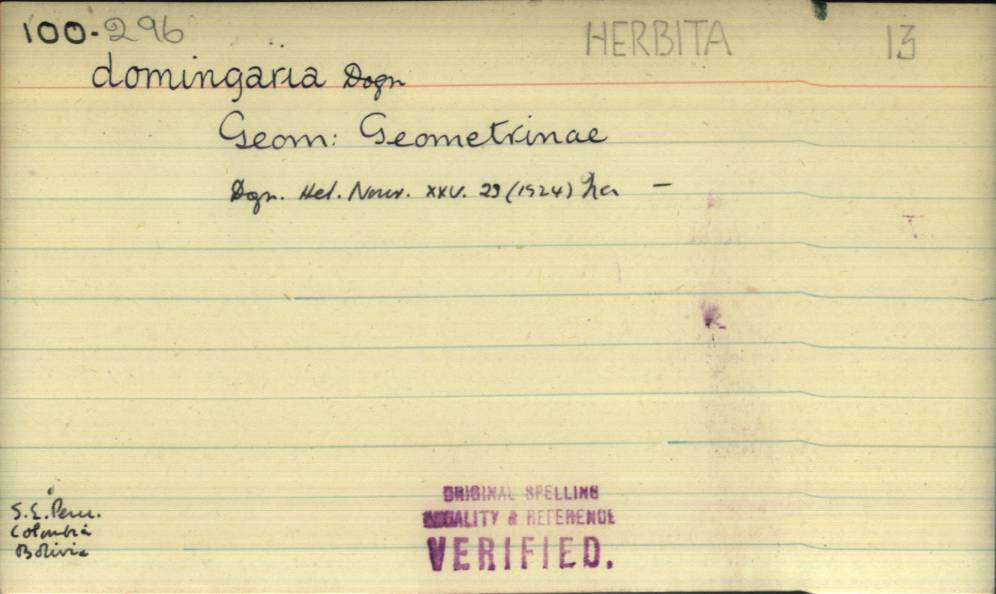 100.296 HERBITA 13
domingaria Dogn
Geom: Geometrinae
Dogn. Het. Nouv. XXV. 23 (1924) ha —
S.E. Peru.
Colombia
Bolivia
ORIGINAL SPELLING
LOCALITY & REFERENCE
VERIFIED.